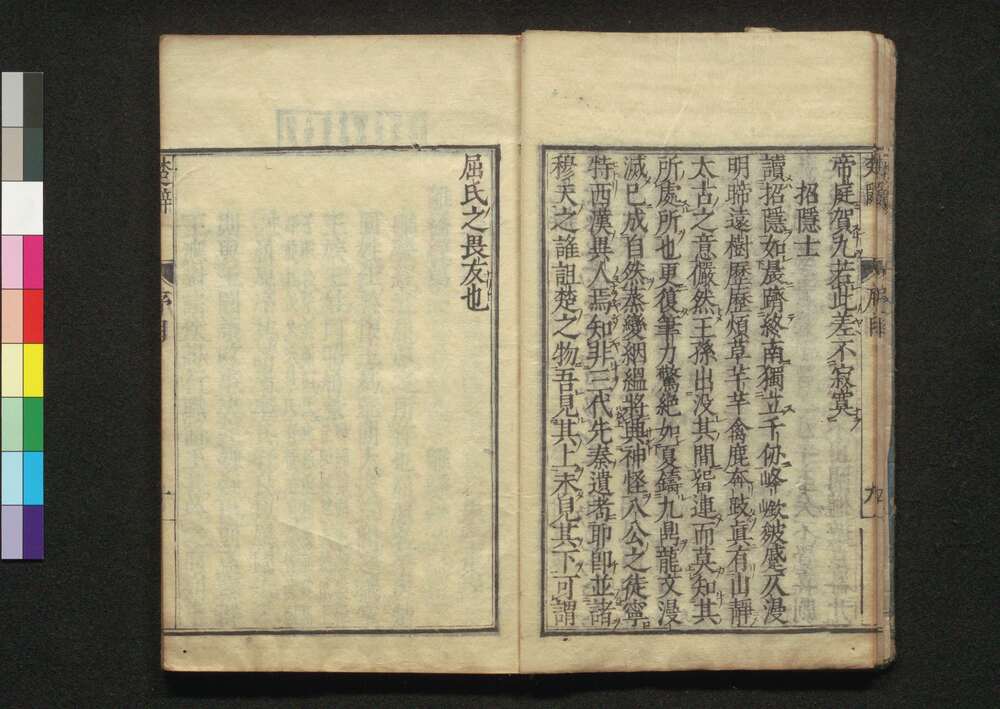 帝庭賀九若此差不寂寞
招隱士
讀招隱如晨躋終南獨立千仞峰皴蹙仄漫
明睇遠樹歷歷煩草芊芊禽鹿奔跂真有山靜
太古之意儼然王孫出没其間畱連而莫知其
所處所也更復筆力驚絶如夏鑄九鼎龍文漫
滅已成自然蒸變絪縕將與神怪八公之徒寧
特西漢異人焉知非三代先秦遺者耶卽並諸
穆天之誰詛楚之物吾見其上未見其下可謂
屈氏之畏友也
楚辭
序目
九